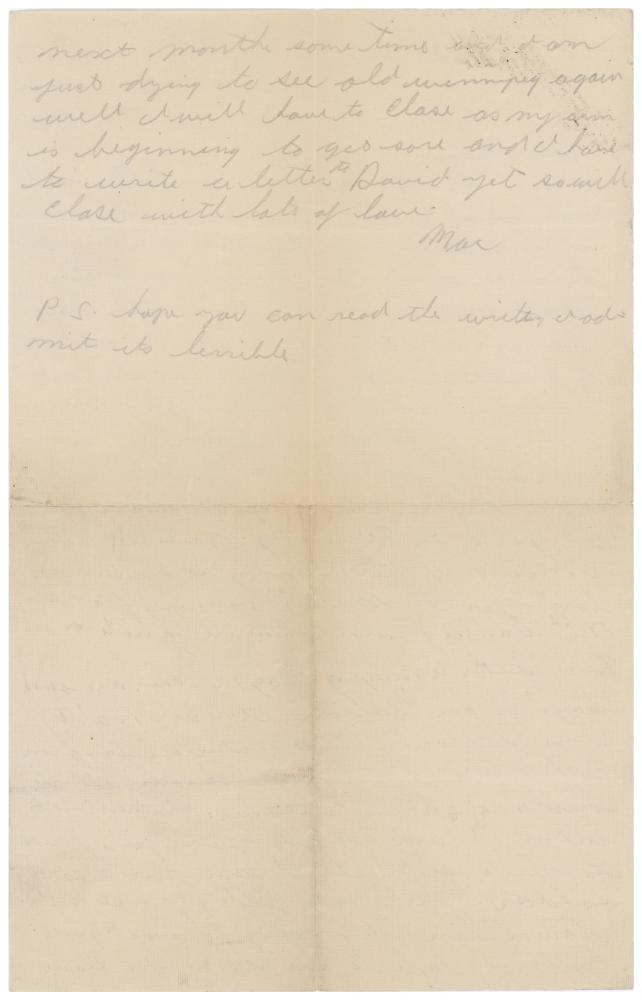 next month some time and I am
just dying to see old winnipeg again
well I will have to close as my arm
is beginning to get sore and I have
to write a letter to David yet so will
close with lots of love.
Mac
P.S. hope you can read the writing I ad-
mit its terrible